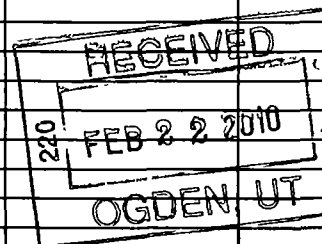 RECEIVED
220
FEB 22 2010
OGDEN, UT